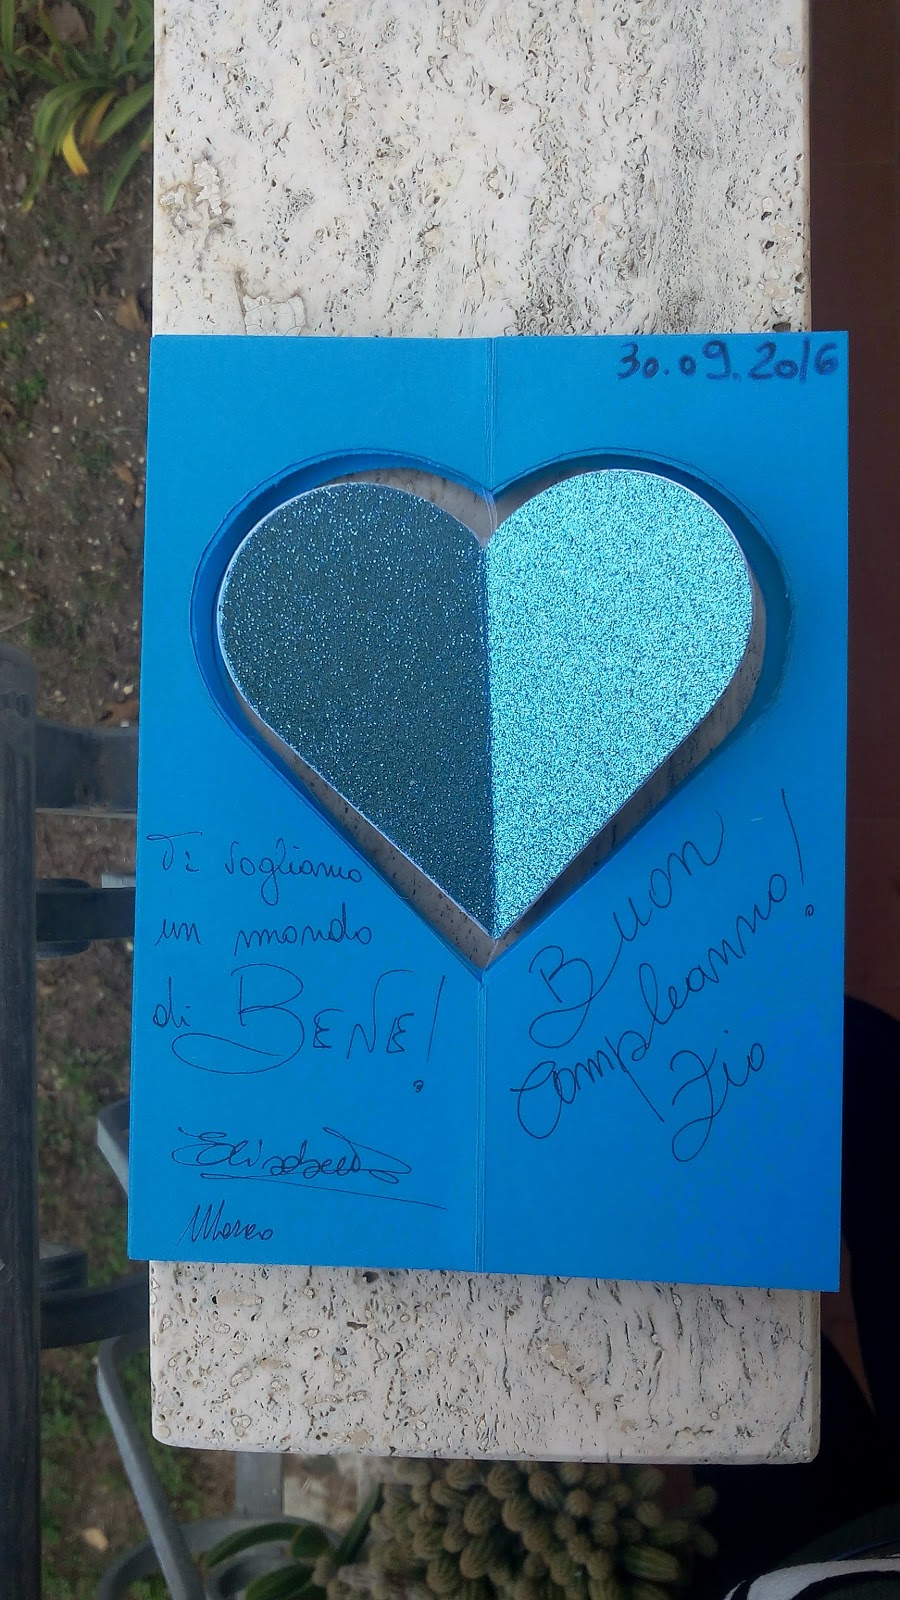 30.09.2016
Ti vogliamo
un mondo
di BENE!
Elisabetta
Marco
Buon
compleanno!
Zio